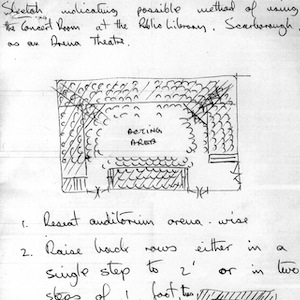 Sketch indicating possible method of using
the Concert Room at the Public Library, Scarborough,
as an Arena Theatre.
ACTING
AREA
1. Reseat auditorium arena-wise
2. Raise back rows either in a
single step to 2' or in two
steps of 1 foot, thus